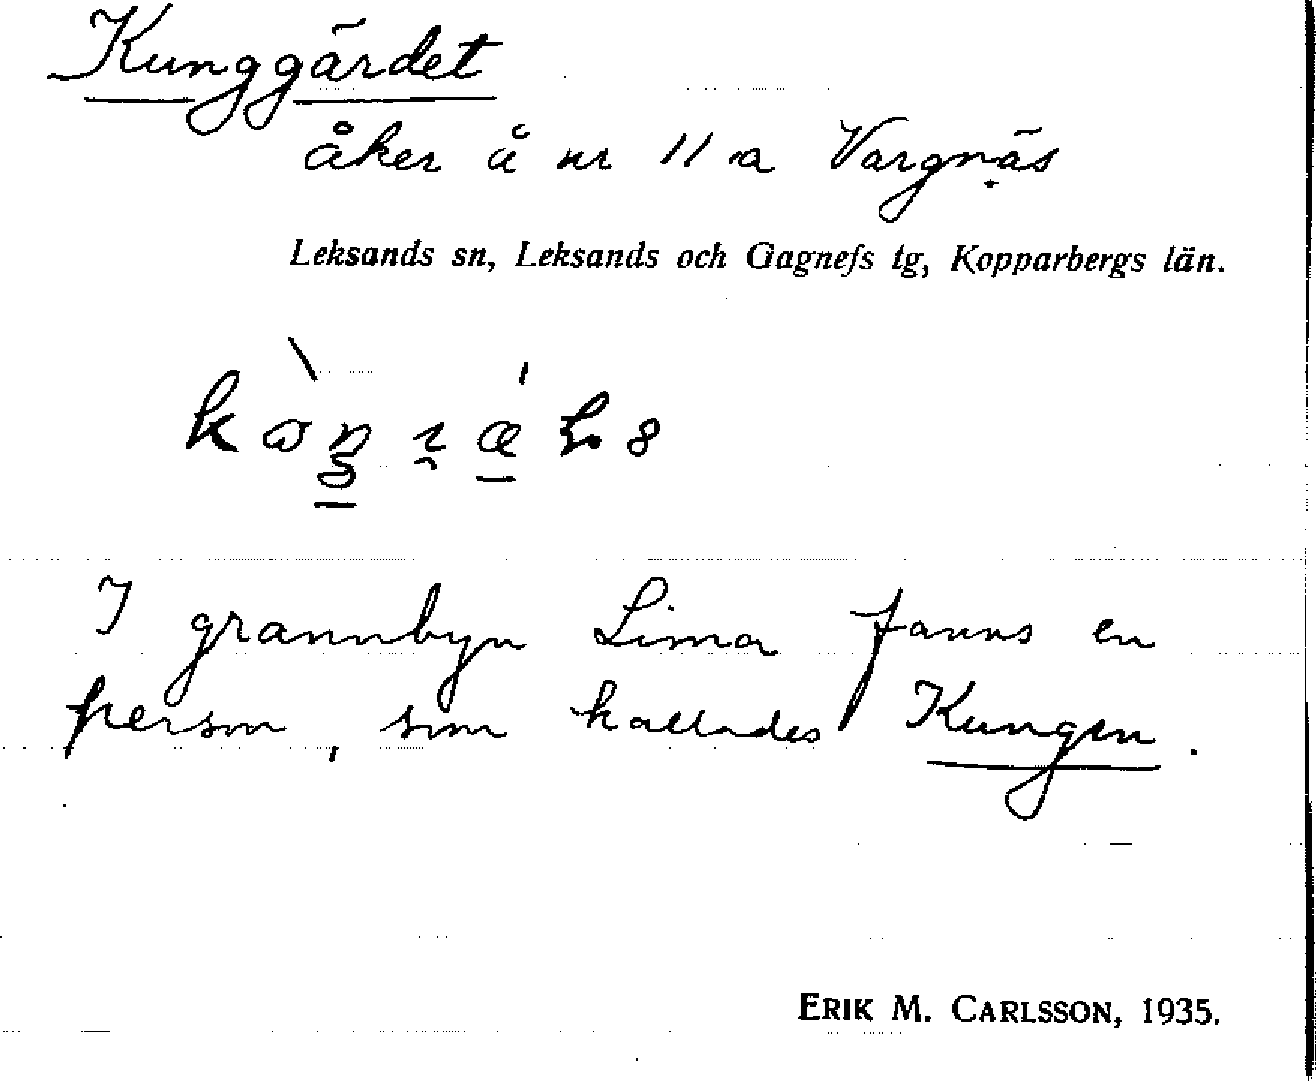 Kunggärdet
åker å nr 11a Vargnäs
Leksands sn, Leksands och Gagnefs tg, Kopparbergs län.
I grannbyn Lima fanns en
person, som kallades Kungen.
ERIK M. CARLSSON, 1935.